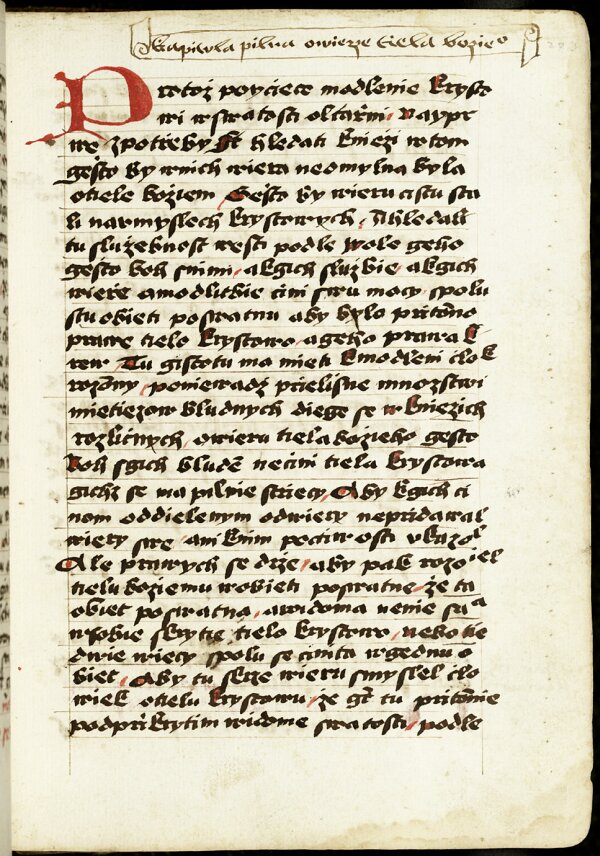 Kapitula pilna owierze tiela bozieo
Protoz powiece modlenie krysto
wi wswatosti oltarni Naypr
we zpotreby st hledati kniezi wtom
gesto by wnich wiera neomylna byla
otiele boziem Gesto by wieru cistu sta
li narmyslech krystowych, Ahledali
tu sluzebnost westi podle wole geho
gesto boh snimi, akgich sluzbie, akgich
wiere amodlitbie cini swu mocy, spolu
stu obieti poswatnu aby bylo pritomno
prawe tielo krystowo, ageho prawa k
rew, Tu gistotu ma mieti kmodleni clok
rozomny, poniewadz prielisne mnozstwi
mietiezow bludnych diege se wkniezich
rozlicnych, owieru tiela bozieho gesto
Boh sgich blude necini tiela krystowa
gichz se ma pilnie strziecy, Aby kgich ci
nom oddielenym odwiery nepridawal
wiery swe, ani knim poctiwosti vkazol
Ale prawych se drze, aby pak rozoiel
tielu boziemu wobieti poswatne, ze ta
obiet poswatna, awidoma nenie sua
wsobie skrytie tielo krystowo, nebo tie
dwie wiecy spolu se cinita wgednu o
biet, Aby tu skrze wieru smyslel clo
wiek otielu krystowu, ze gt tu pritomie
podprikrytim widome swatosti, podle